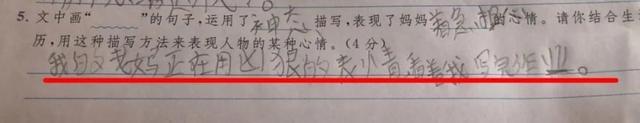 5. 文中画“﹏﹏”的句子,运用了神态描写,表现了妈妈着急的心情。请你结合生
历,用这种描写方法来表现人物的某种心情。(4分)
我的妈正在用凶狠的表情看着我写完作业。